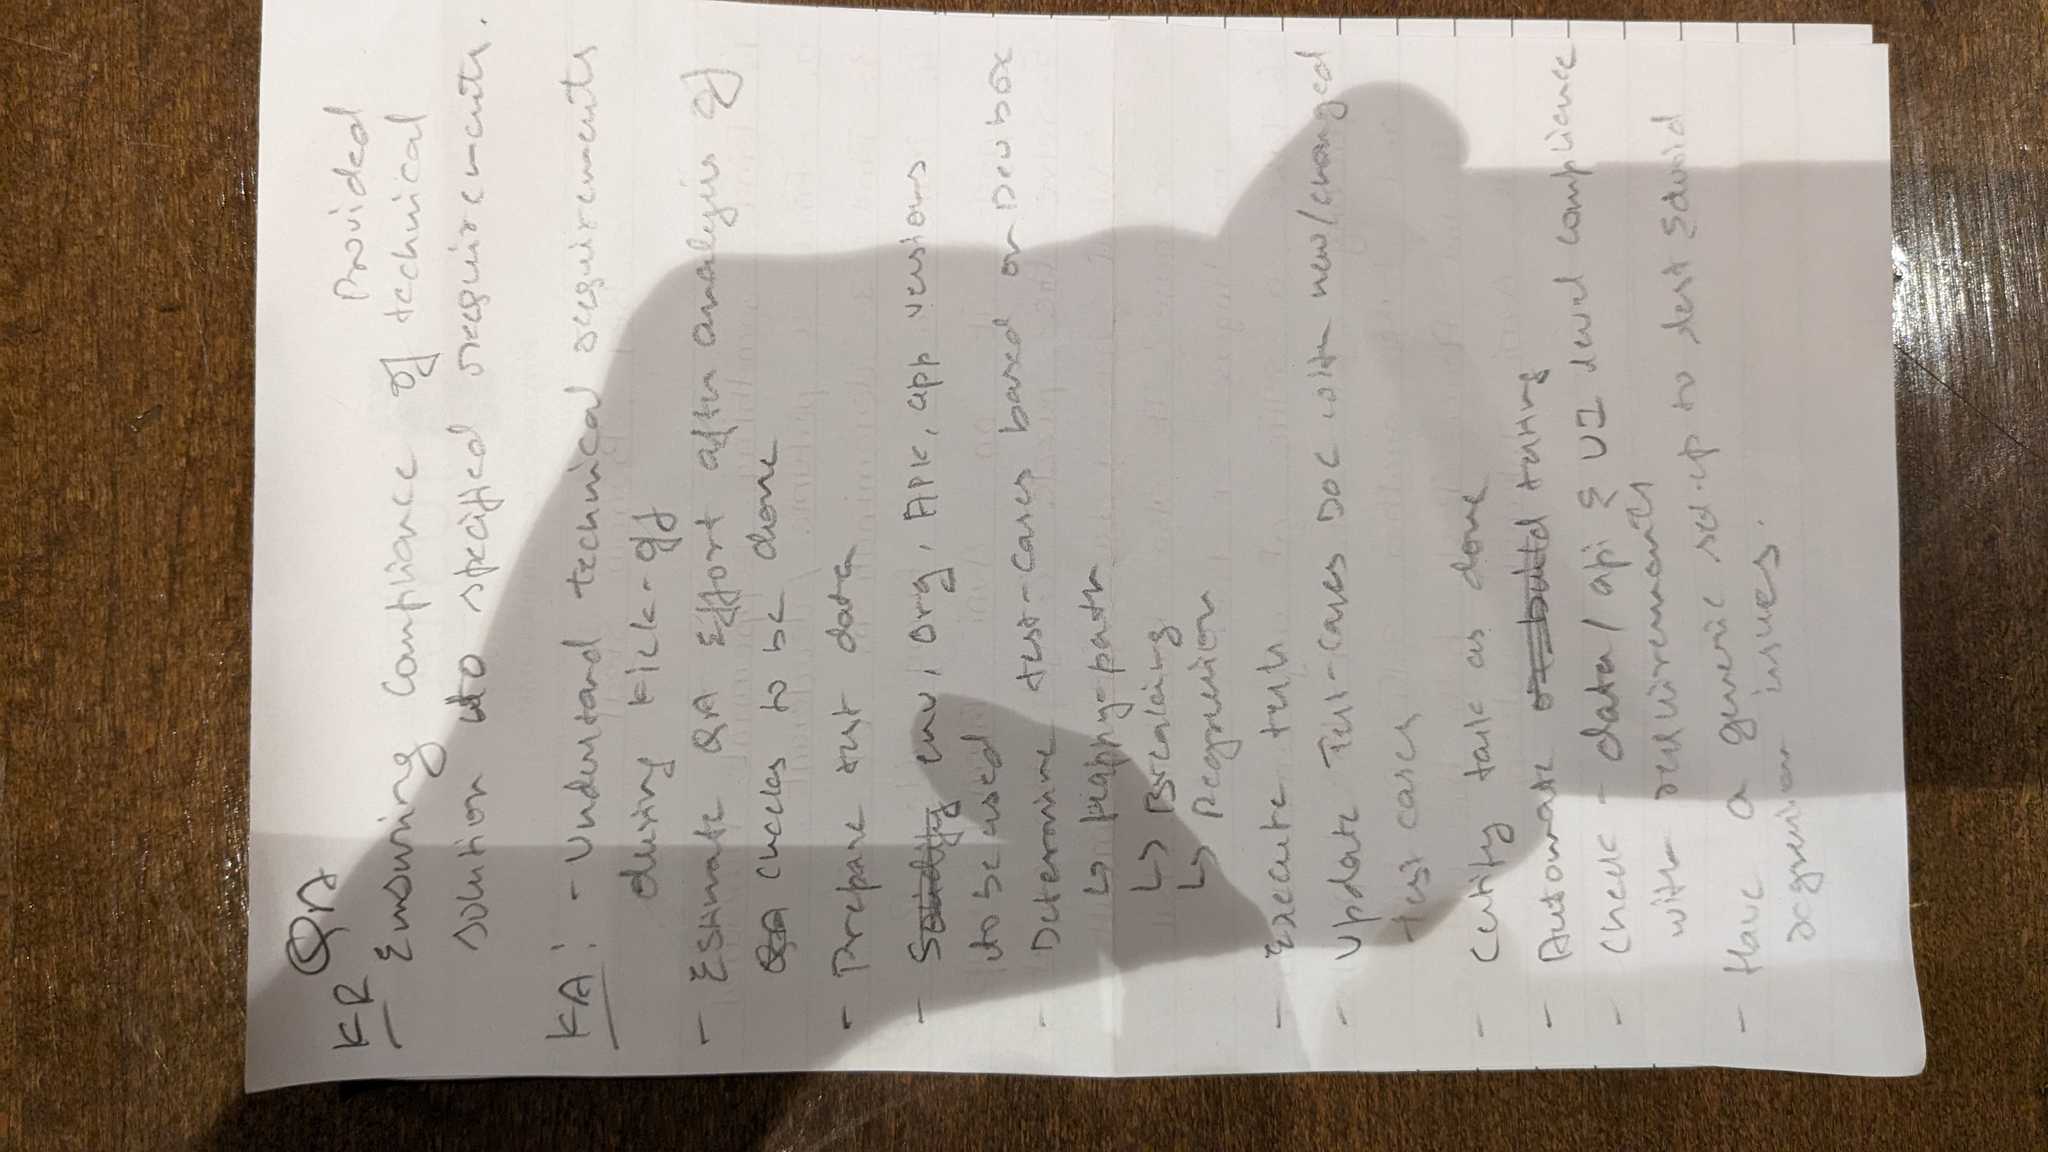 QA
KR Provided
Ensuring compliance of technical
solution to specified requirements.
KA: - Understand technical requirements
during kick-off
- Estimate QA Effort after analysis of
cycles to be done
- Prepare test data
- env, org, APK, app versions
to be used
- Determine test-cases based on Devbox
↳ happy-path
↳ Breaking
↳ Regression
- Execute tests
- Update Test-cases DOC with new/changed
test cases
- Certify task as done
- Automate testing
- Check - data / api & UI level complience
with requirements
- Have a generic set-up to test & avoid
regression issues.